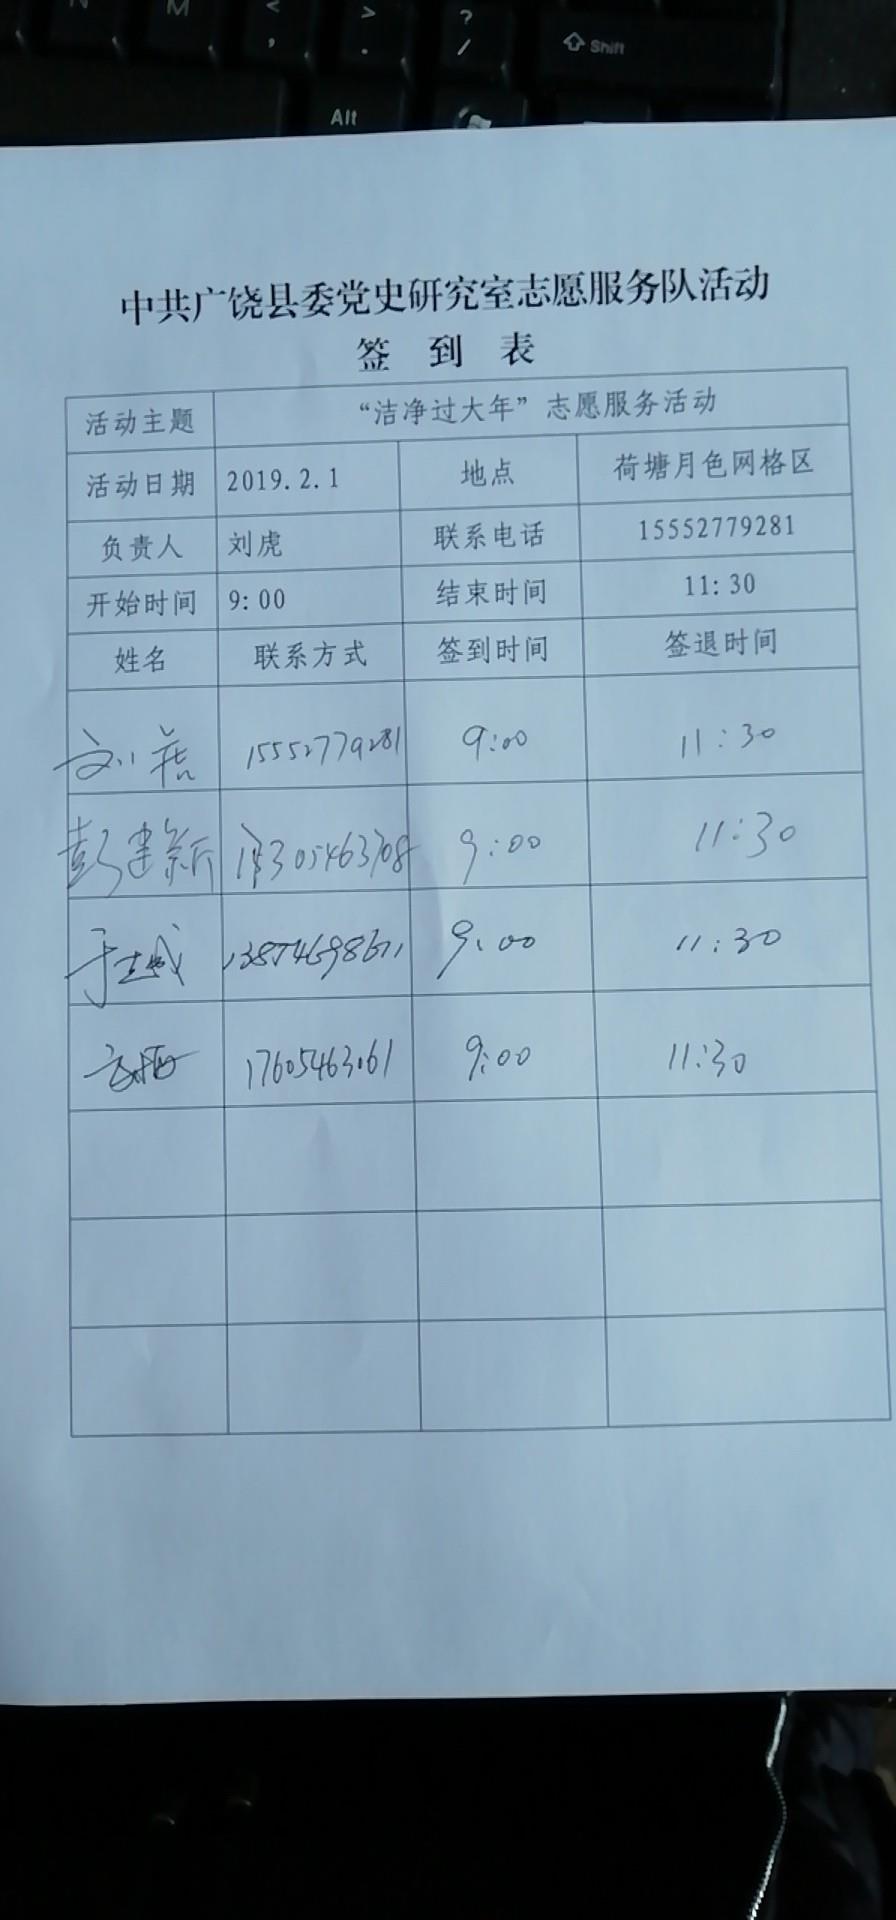 N M < , > . ? / Shift
Alt
中共广饶县委党史研究室志愿服务队活动
签 到 表
活动主题 “洁净过大年”志愿服务活动
活动日期 2019.2.1 地点 荷塘月色网格区
负责人 刘虎 联系电话 15552779281
开始时间 9:00 结束时间 11:30
姓名 联系方式 签到时间 签退时间
刘虎 15552779281 9:00 11:30
彭建新 9:00 11:30
9:00 11:30
17605463061 9:00 11:30